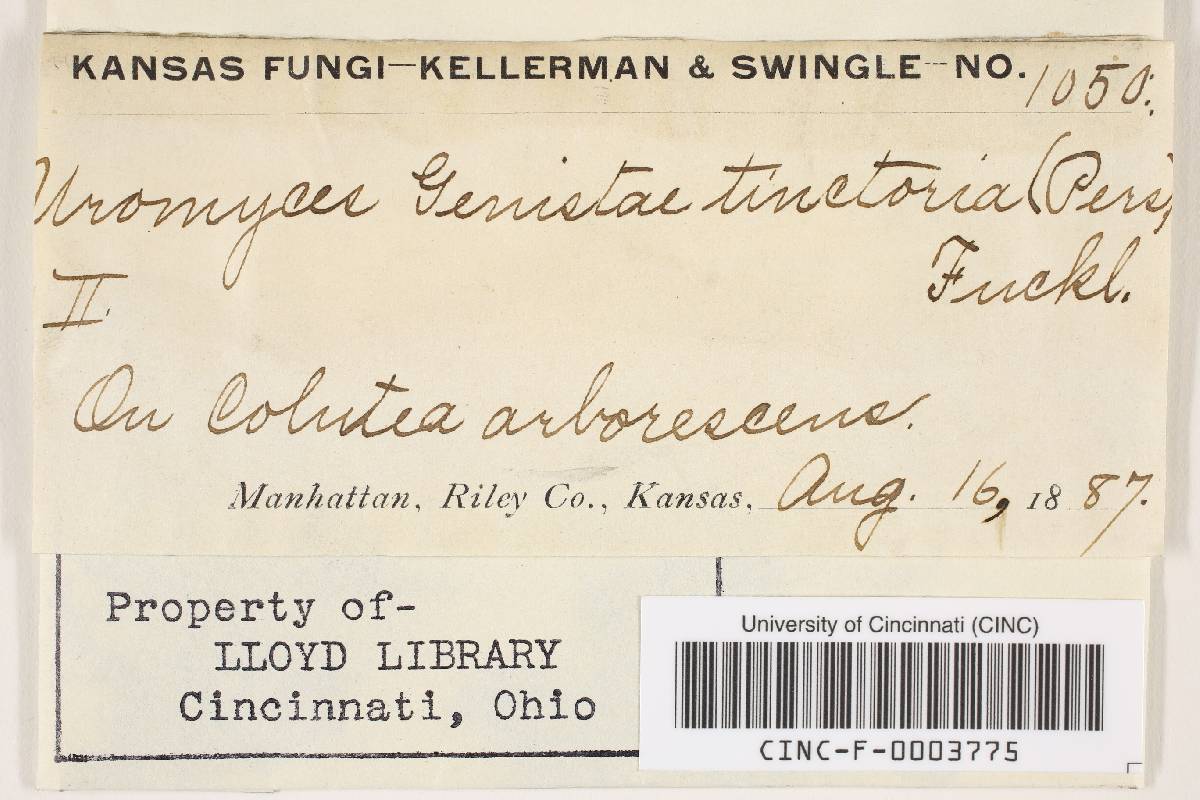 KANSAS FUNGI—KELLERMAN & SWINGLE—NO. 1050.
Uromyces Genistae tinctoria (Pers)
Fuckl.
II.
On Colutea arborescens.
Manhattan, Riley Co., Kansas, Aug. 16, 1887.
Property of-
LLOYD LIBRARY
Cincinnati, Ohio
University of Cincinnati (CINC)
CINC-F-0003775